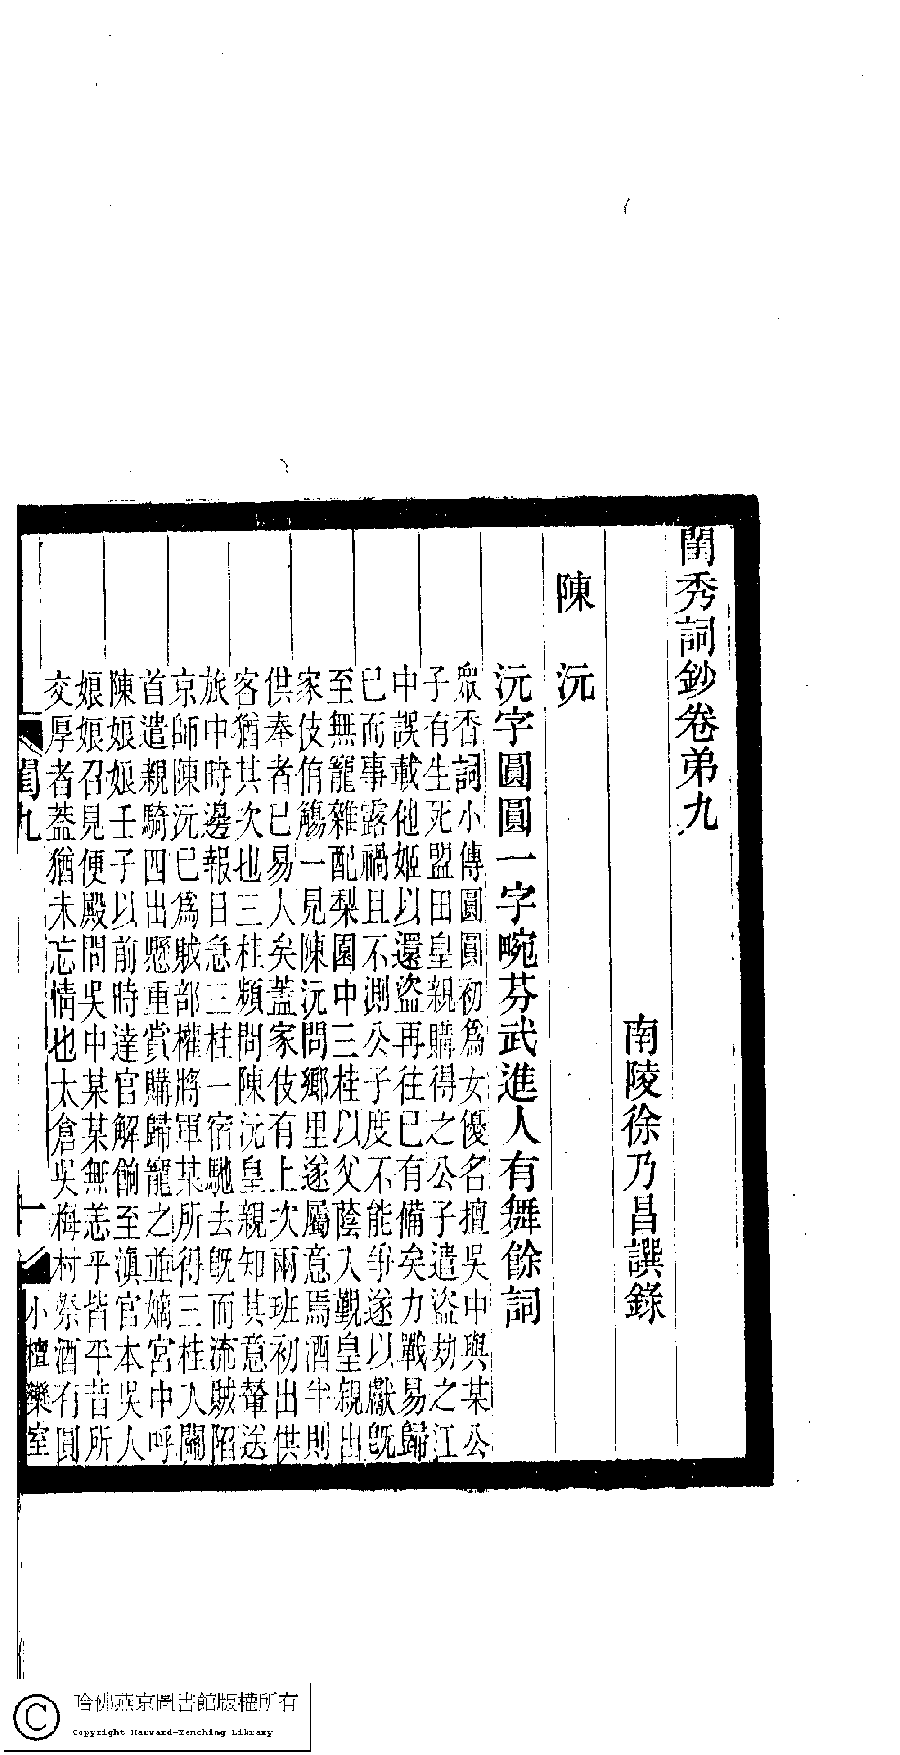 閨秀詞鈔卷弟九
南陵徐乃昌譔錄
陳沅
沅字圓圓一字畹芬武進人有舞餘詞
衆香詞小傳圓圓初爲女優名擅吳中與某公
子有生死盟田皇親購得之公子遣盜劫之江
中誤載他姬以還盜再往已有備矣力戰易歸
已而事露禍且不測公子度不能爭遂以獻旣
至無寵雜配梨園中三桂以父蔭入覲皇親出
家伎侑觴一見陳沅問鄉里遂屬意焉酒半則
供奉者已易人矣蓋家伎有上次兩班初出供
客猶其次也三桂頻問陳沅皇親知其意輦送
旅中時邊報日急三桂一宿馳去旣而流賊陷
京師陳沅已爲賊部權將軍某所得三桂入關
首遣親騎四出懸重賞購歸寵之並嫡宮中呼
陳娘娘壬子以前時達官解餉至滇官本吳人
娘娘召見便殿問吳中某某無恙乎皆平昔所
交厚者蓋猶未忘情也太倉吳梅村祭酒有圓
閨九
一
小檀欒室
哈佛燕京圖書館版權所有
Copyright Harvard-Yenching Library